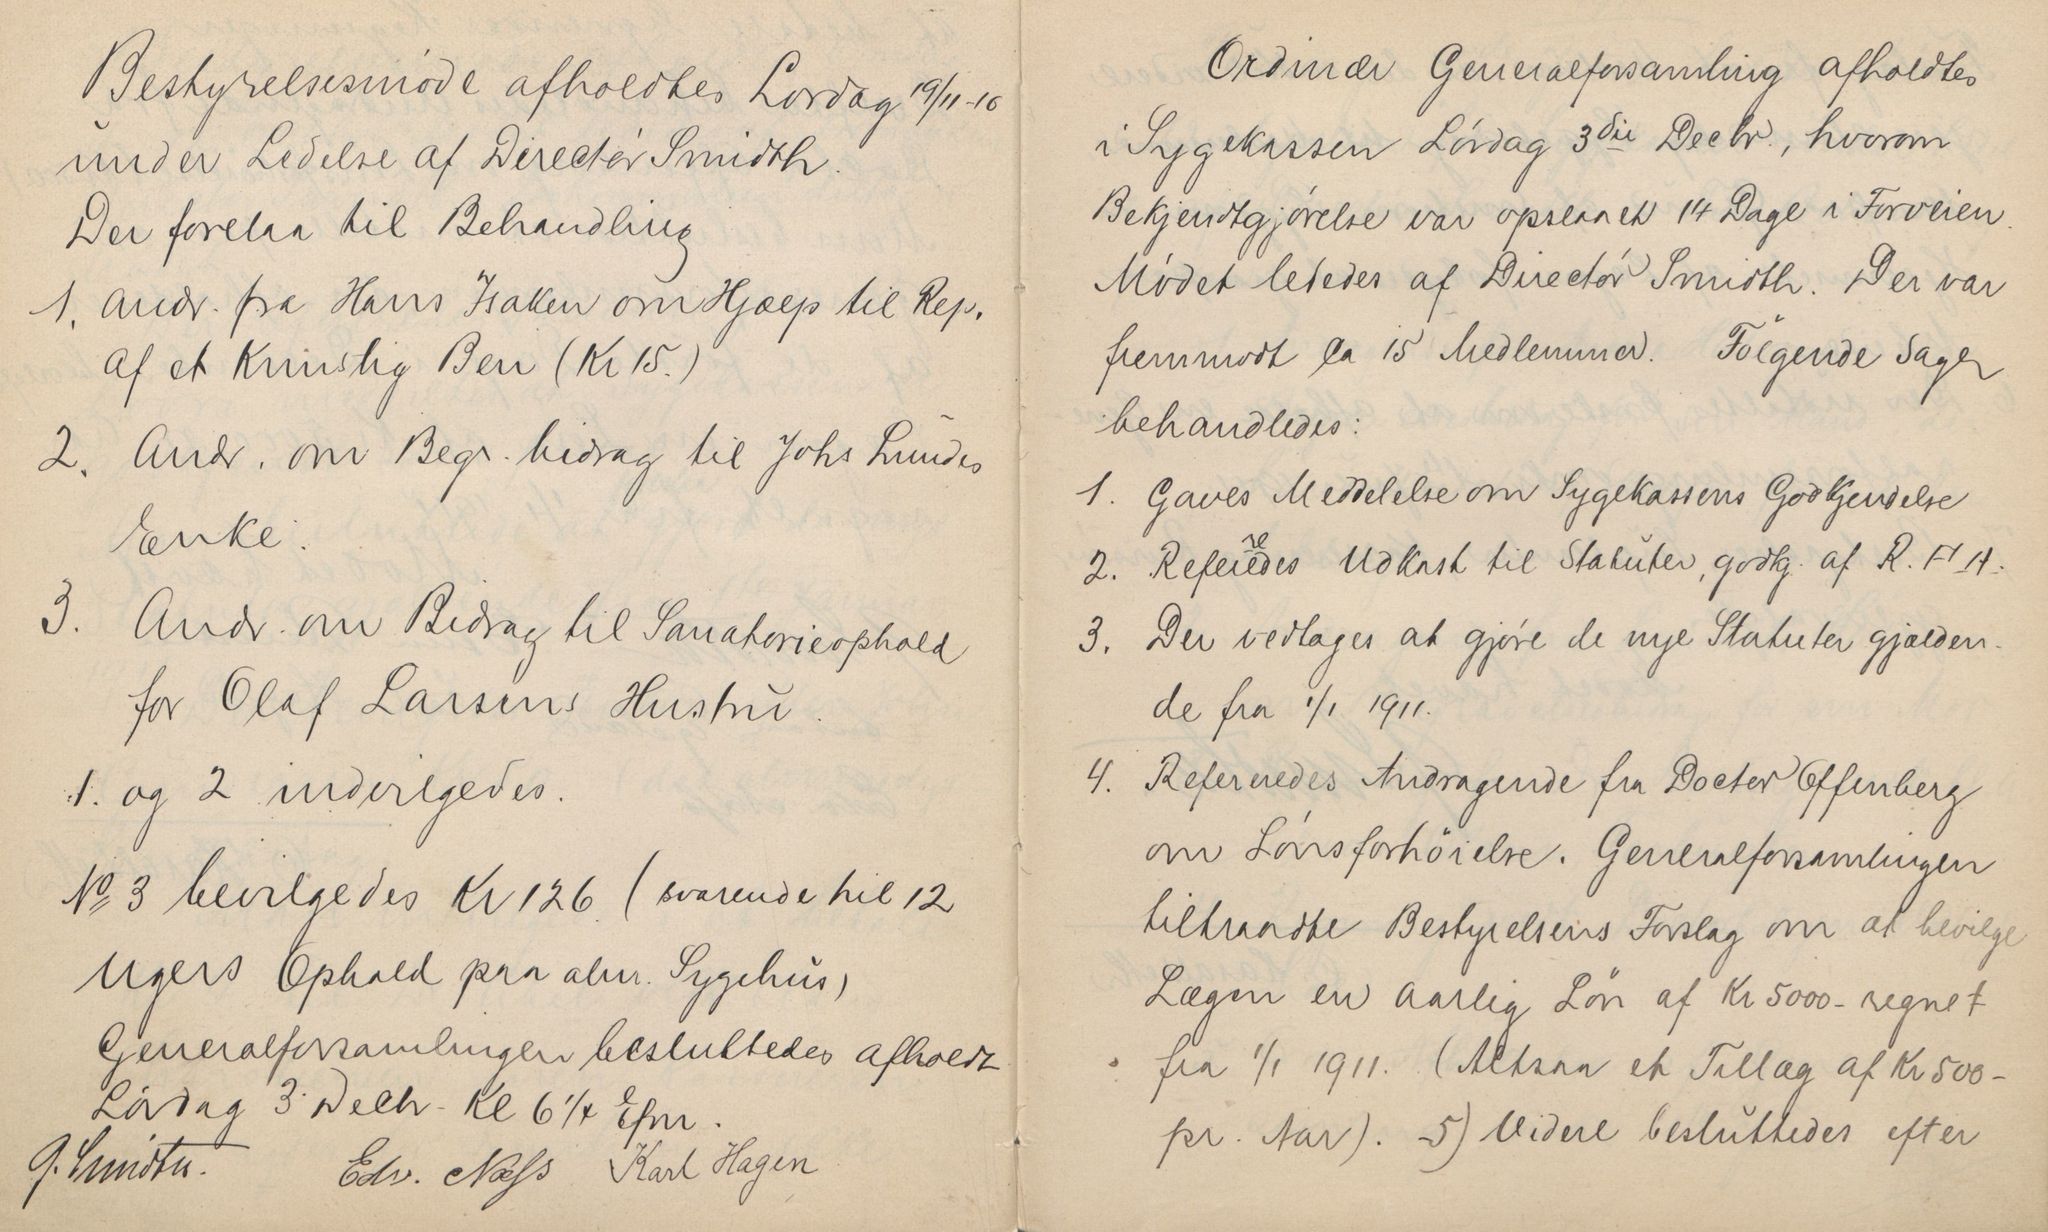 Bestyrelsesmøde afholdtes Lørdag 19/11-10
under Ledelse af Director Smidth.
Der forelaa til Behandling
1. Andr. fra Hans Isaksen om Hjælp til Rep.
af et Kunstig Ben (Kr 15.)
2. Andr. om Begr. bidrag til Johs Lundes
Enke.
3. Andr. om Bidrag til Sanatorieophold
for Olaf Larsens Hustru.
1. og 2 indvilgedes.
No 3 bevilgedes Kr 126 (svarende til 12
Ugers Ophold paa alm. Sygehus)
Generalforsamlingen besluttedes afholdt
Lørdag 3. Decbr. Kl 6 1/4 Efm.
G. Smidth. Edv. Næss Karl Hagen
Ordinær Generalforsamling afholdtes
i Sygekassen Lørdag 3die Decbr., hvorom
Bekjendtgjørelse var opslaaet 14 Dage i Forveien.
Mødet lededes af Director Smidth. Der var
fremmødt ca 15 Medlemmer. Følgende Sager
behandledes:
1. Gaves Meddelelse om Sygekassens Godkjendelse
2. Refereredes Udkast til Statuter, godkj. af R. F. A.
3. Der vedtages at gjøre de nye Statuter gjælden-
de fra 1/1 1911.
4. Refereredes Andragende fra Doctor Offenberg
om Lønsforhöielse. Generalforsamlingen
tiltraadte Bestyrelsens Forslag om at bevilge
Lægen en aarlig Løn af Kr 5000- regnet
fra 1/1 1911. (Altsaa et Tillæg af Kr 500-
pr. Aar). 5) Videre besluttedes efter